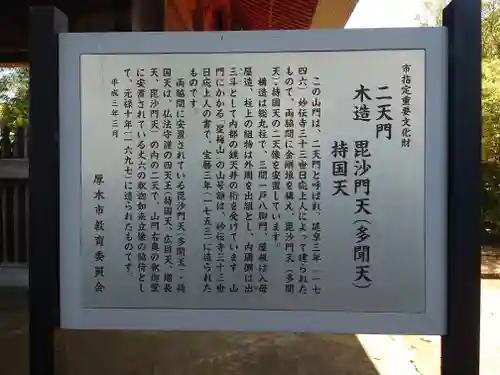 市指定重要文化財
二天門
木造 毘沙門天(多聞天)
持国天
この山門は、二天門と呼ばれ、延享三年(一七
四六)妙伝寺三十三世日庇上人によって建られた
もので、両脇間に金剛垣を構え、毘沙門天(多聞
天)・持国天の二天像を安置しています。
構造は総丸柱で、三間一戸八脚門、屋根は入母
屋造、柱上の組物は外周を出組とし、内周側は出
三斗として内部の鏡天井の桁を受けています。山
門にかかる「星梅山」の山号額は、妙伝寺三十三世
日庇上人の書で、宝暦三年(一七五三)に造られた
ものです。
両脇間に安置されている毘沙門天(多聞天)・持
国天は、仏法守護の四天王(持国天、広目天、増長
天、毘沙門天)の内の二天で、山門右奥の釈迦堂
に安置されている丈六の釈迦如来立像の脇侍とし
て、元禄十年(一六九七)に造られたものです。
平成三年三月
厚木市教育委員会